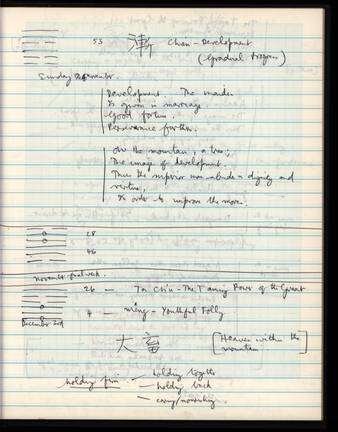 53 漸 Chien - Development
(Gradual Progress)
Sunday
Development. The maiden
Is given in marriage.
Good fortune.
Perseverance furthers.
On the mountain, a tree;
The image of development.
Thus the superior man abides in dignity and
virtue,
In order to improve the mores.
28
46
November
26 — Ta Ch'u - The Taming Power of the Great
4 — Mêng - Youthful Folly
December 3rd
大畜 [Heaven within the
mountain]
holding firm — holding together
— holding back
— caring/nourishing